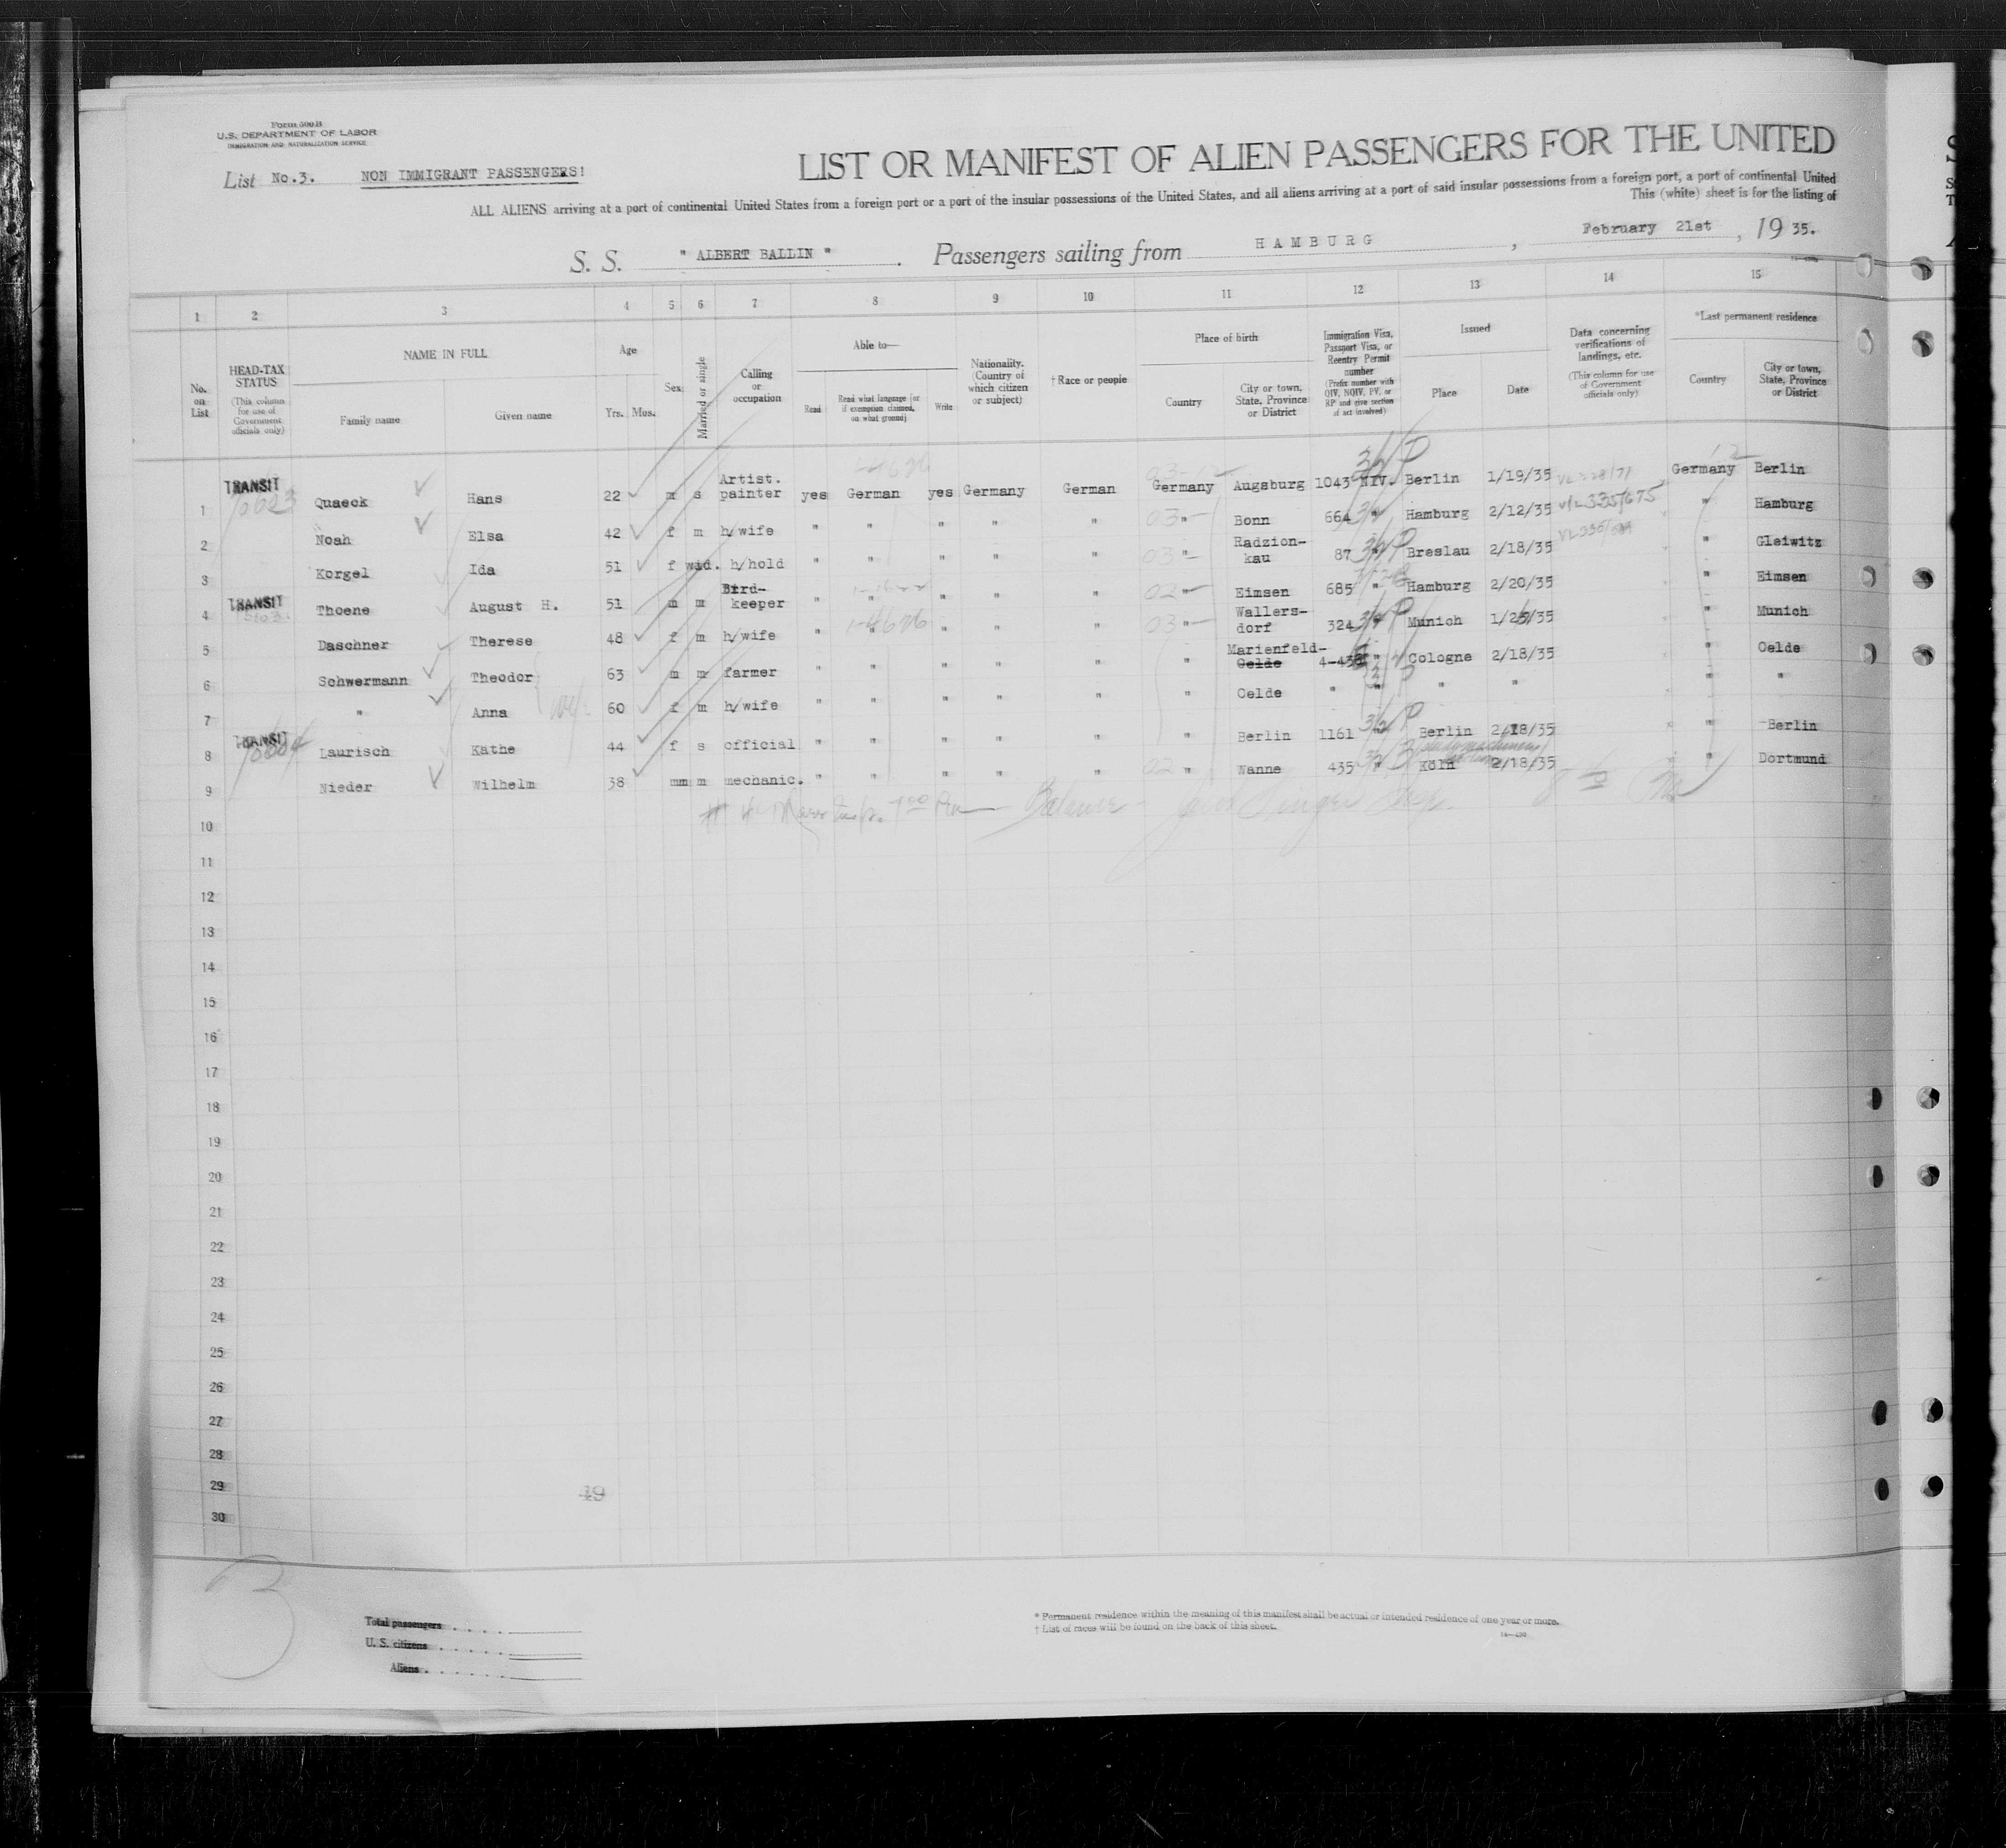 Form 500 B
U.S. DEPARTMENT OF LABOR
IMMIGRATION AND NATURALIZATION SERVICE
List No.3. NON IMMIGRANT PASSENGERS!
LIST OR MANIFEST OF ALIEN PASSENGERS FOR THE UNITED
ALL ALIENS arriving at a port of continental United States from a foreign port or a port of the insular possessions of the United States, and all aliens arriving at a port of said insular possessions from a foreign port, a port of continental United
This (white) sheet is for the listing of
S. S. " ALBERT BALLIN " . Passengers sailing from HAMBURG , February 21st , 19 35.
1 2 3 4 5 6 7 8 9 10 11 12 13 14 15
No. on List
HEAD-TAX STATUS (This column for use of Government officials only)
NAME IN FULL
Family name Given name
Age
Yrs. Mos.
Sex
Married or single
Calling or occupation
Able to—
Read Read what language [or if exemption claimed, on what ground] Write
Nationality. (Country of which citizen or subject)
†Race or people
Place of birth
Country City or town, State, Province or District
Immigration Visa, Passport Visa, or Reentry Permit number (Prefix number with QIV, NQIV, PV, or RP and give section of act involved)
Issued
Place Date
Data concerning verifications of landings, etc. (This column for use of Government officials only)
*Last permanent residence
Country City or town, State, Province or District
1 TRANSIT Quaeck Hans 22 m s Artist. painter yes German yes Germany German Germany Augsburg 1043 NIV. Berlin 1/19/35 Germany Berlin
2 Noah Elsa 42 f m h/wife " " " " " " Bonn 664 " Hamburg 2/12/35 " Hamburg
3 Korgel Ida 51 f wid. h/hold " " " " " " Radzion-kau 87 " Breslau 2/18/35 " Gleiwitz
4 TRANSIT Thoene August H. 51 m m Bird-keeper " " " " " " Eimsen 685 " Hamburg 2/20/35 " Eimsen
5 Daschner Therese 48 f m h/wife " " " " " " Wallers-dorf 324 " Munich 1/25/35 " Munich
6 Schwermann Theodor 63 m m farmer " " " " " " Marienfeld-Oelde " Cologne 2/18/35 " Oelde
7 " Anna 60 f m h/wife " " " " " " Oelde " " " " " "
8 TRANSIT Laurisch Kathe 44 f s official " " " " " " Berlin 1161 Berlin 2/18/35 " Berlin
9 Nieder Wilhelm 38 mm m mechanic. " " " " " " Wanne 435 " Köln 2/18/35 " Dortmund
10
11
12
13
14
15
16
17
18
19
20
21
22
23
24
25
26
27
28
29
30
49
Total passengers
U. S. citizens
Aliens
* Permanent residence within the meaning of this manifest shall be actual or intended residence of one year or more.
† List of races will be found on the back of this sheet.